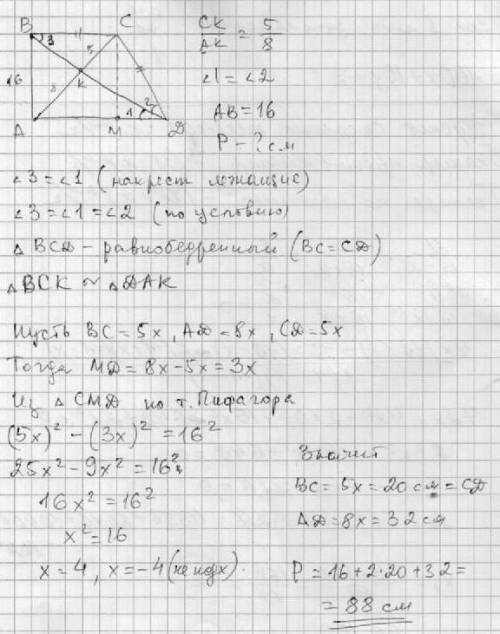 B C
3 5
16 K
8 1 2
A M D
CK/AK = 5/8
∠1 = ∠2
AB = 16
P - ? см
∠3 = ∠1 (накрест лежащие)
∠3 = ∠1 = ∠2 (по условию)
△ BCD - равнобедренный (BC = CD)
△BCK ~ △DAK
Пусть BC = 5x, AD = 8x, CD = 5x
Тогда MD = 8x - 5x = 3x
Из △ CMD по т. Пифагора
(5x)² - (3x)² = 16²
25x² - 9x² = 16²
16x² = 16²
x² = 16
x = 4, x = -4 (не подх).
Значит
BC = 5x = 20 см = CD
AD = 8x = 32 см
P = 16 + 2·20 + 32 =
= 88 см